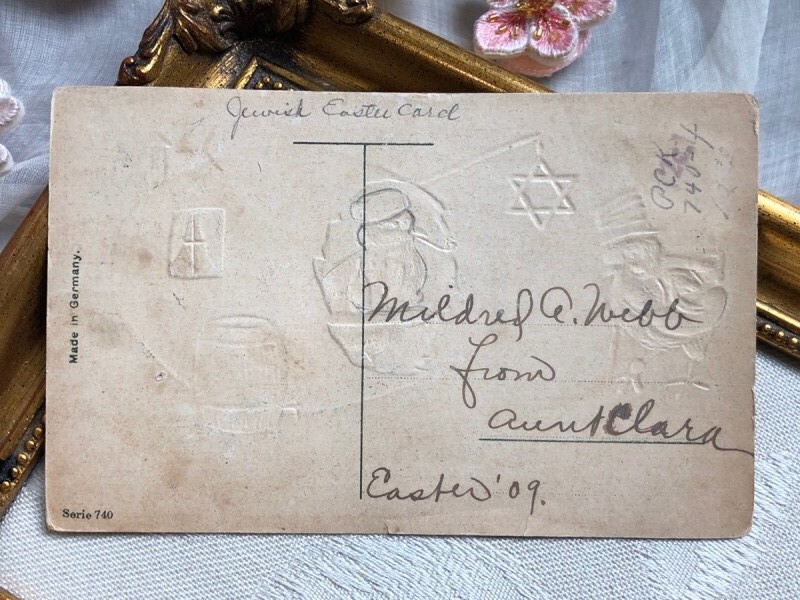 Jewish Easter Card
PCK
740-4
Made in Germany.
Mildred A. Webb
from
Aunt Clara
Easter '09.
Serie 740